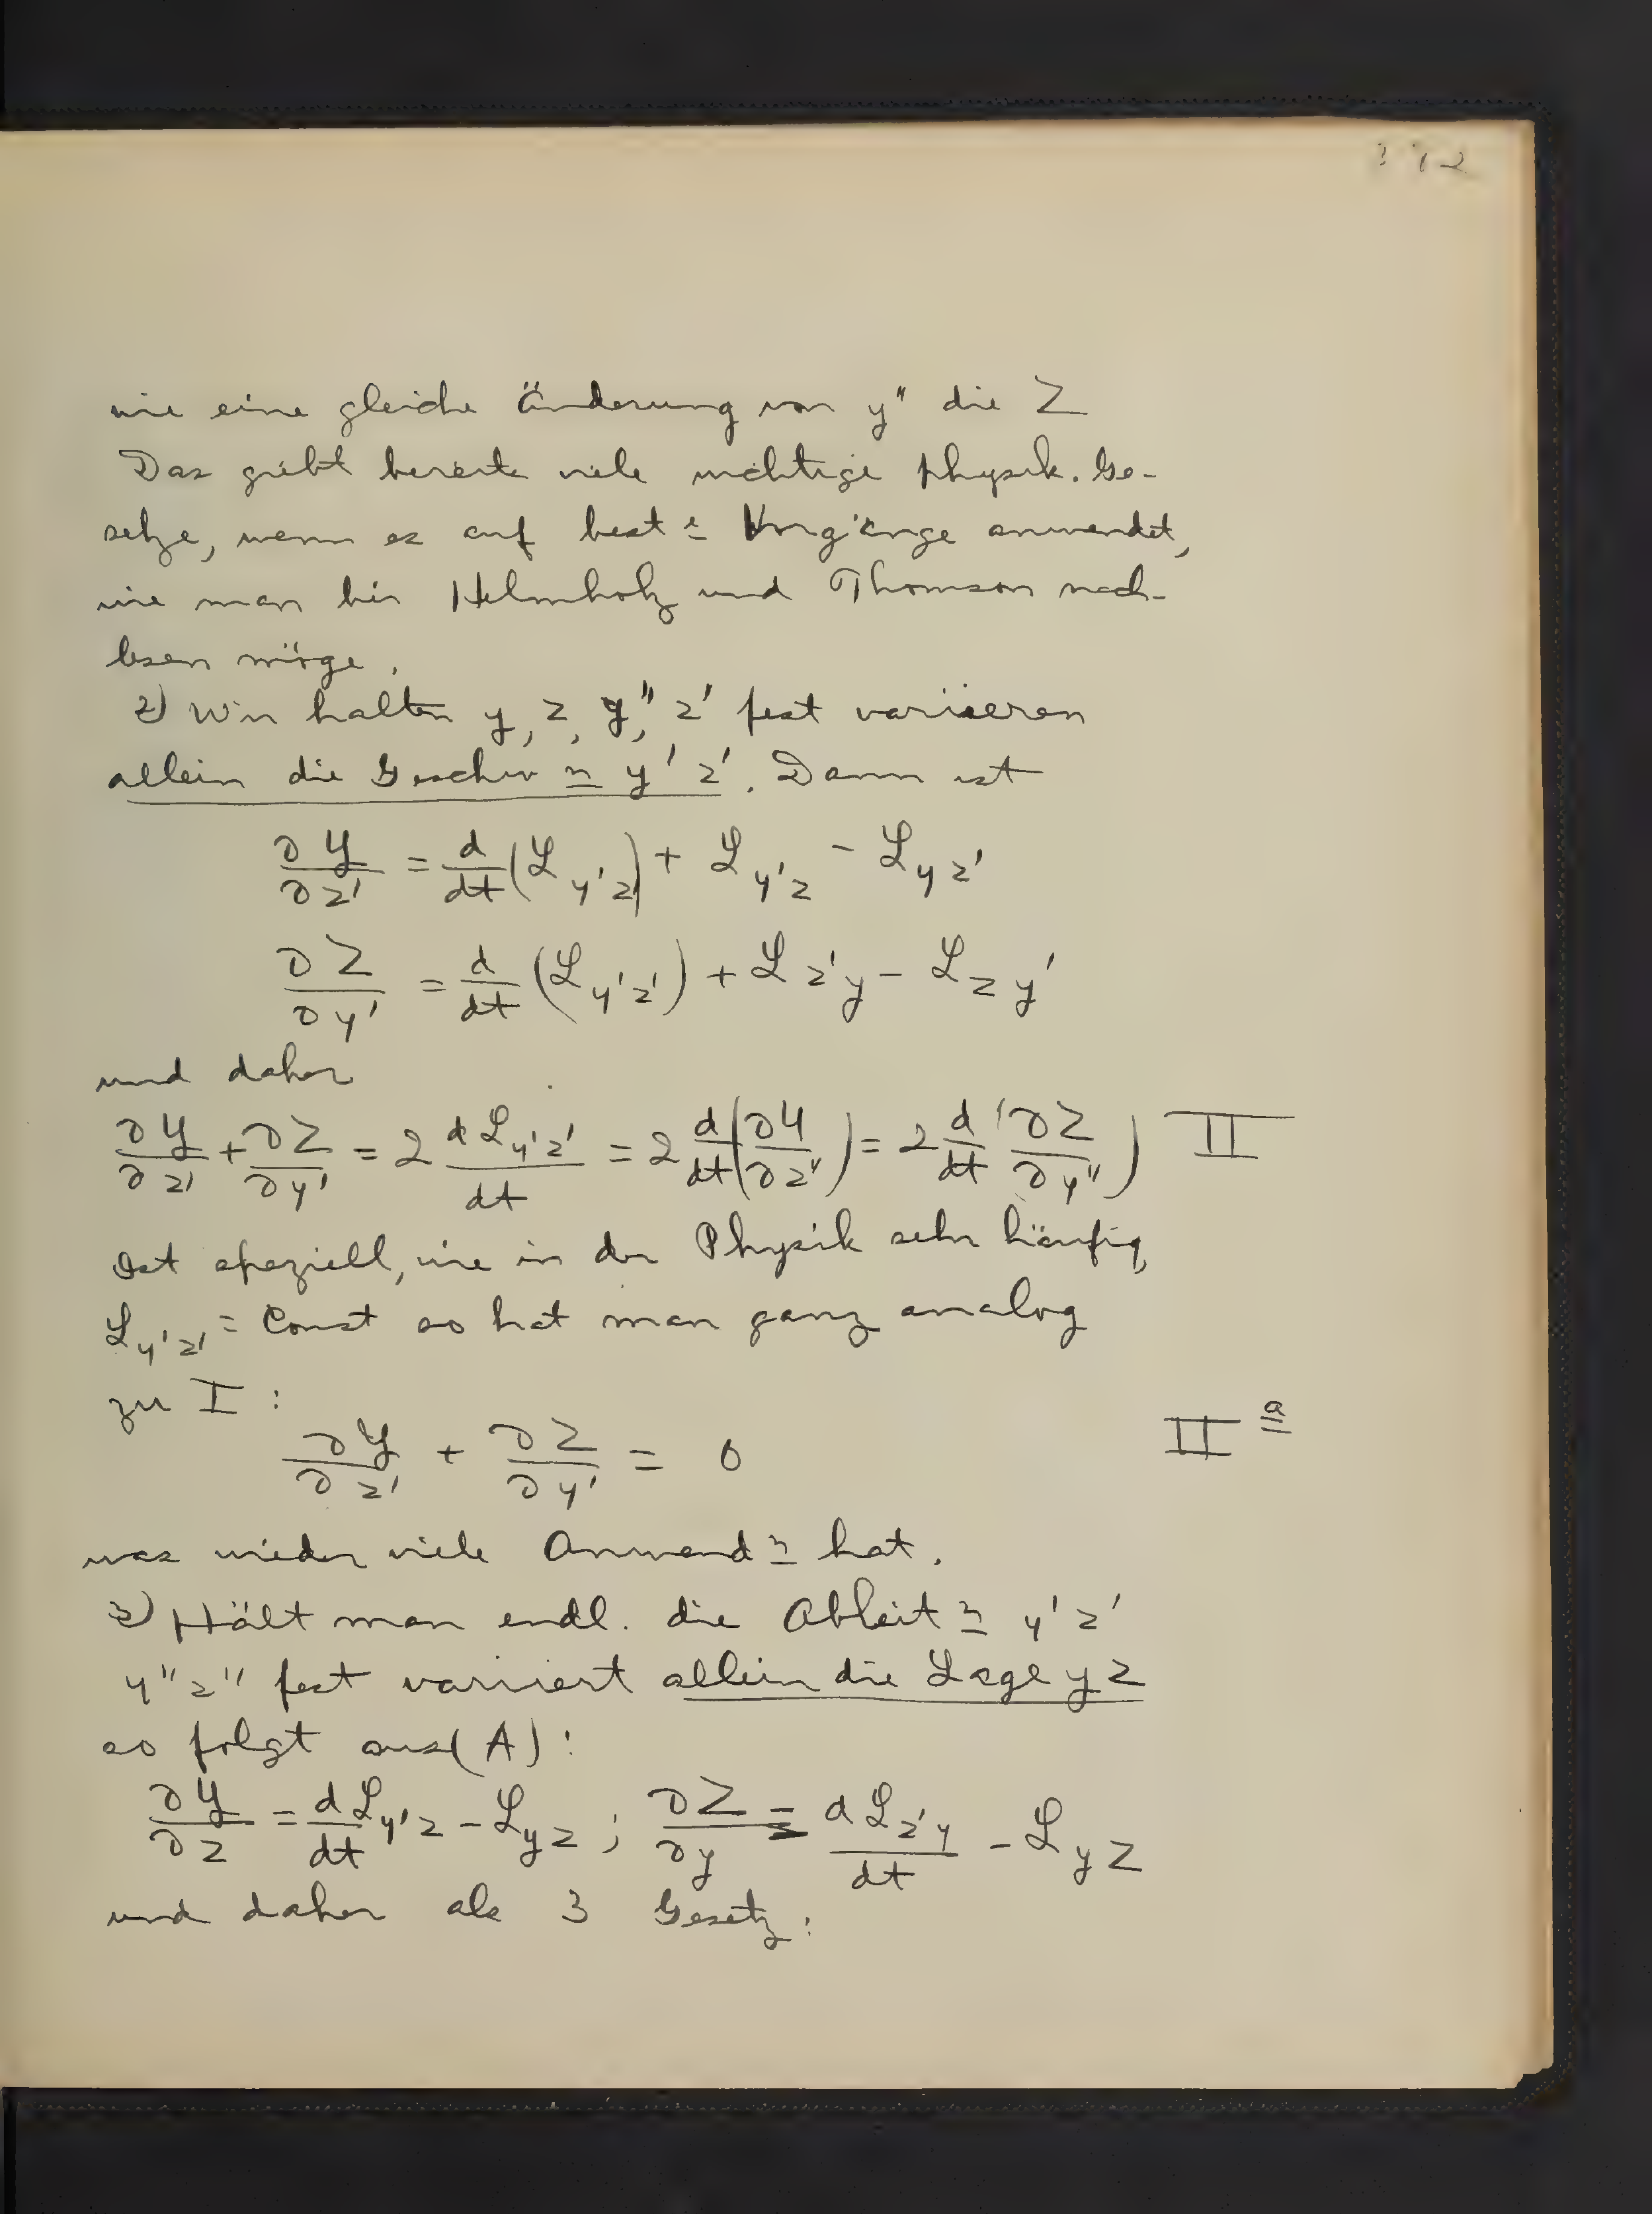 wie eine gleiche Änderung von y'' die Z
Das giebt bereits viele wichtige physik. Ge-
setze, wenn es auf best e Vorgänge anwendet,
wie man bei Helmholtz und Thomson nach-
lesen möge.
2) Wir halten y, z, y'', z' fest variieren
allein die Geschw n y' z'. Dann ist
∂Y/∂z' = d/dt (L_y'z') + L_y'z - L_yz'
∂Z/∂y' = d/dt (L_y'z') + L_z'y - L_zy'
und daher
∂Y/∂z' + ∂Z/∂y' = 2 dL_y'z'/dt = 2 d/dt (∂Y/∂z'') = 2 d/dt (∂Z/∂y'') II
Ist speziell, wie in der Physik sehr häufig,
L_y'z' = Const so hat man ganz analog
zu I :
∂Y/∂z' + ∂Z/∂y' = 0 II a
was wieder viele Anwend n hat.
3) Hält man endl. die Ableit n y' z'
y'' z'' fest variiert allein die Lage y z
so folgt aus (A) :
∂Y/∂z = d/dt L_y'z - L_yz ; ∂Z/∂y = dL_z'y/dt - L_yz
und daher als 3 Gesetz :